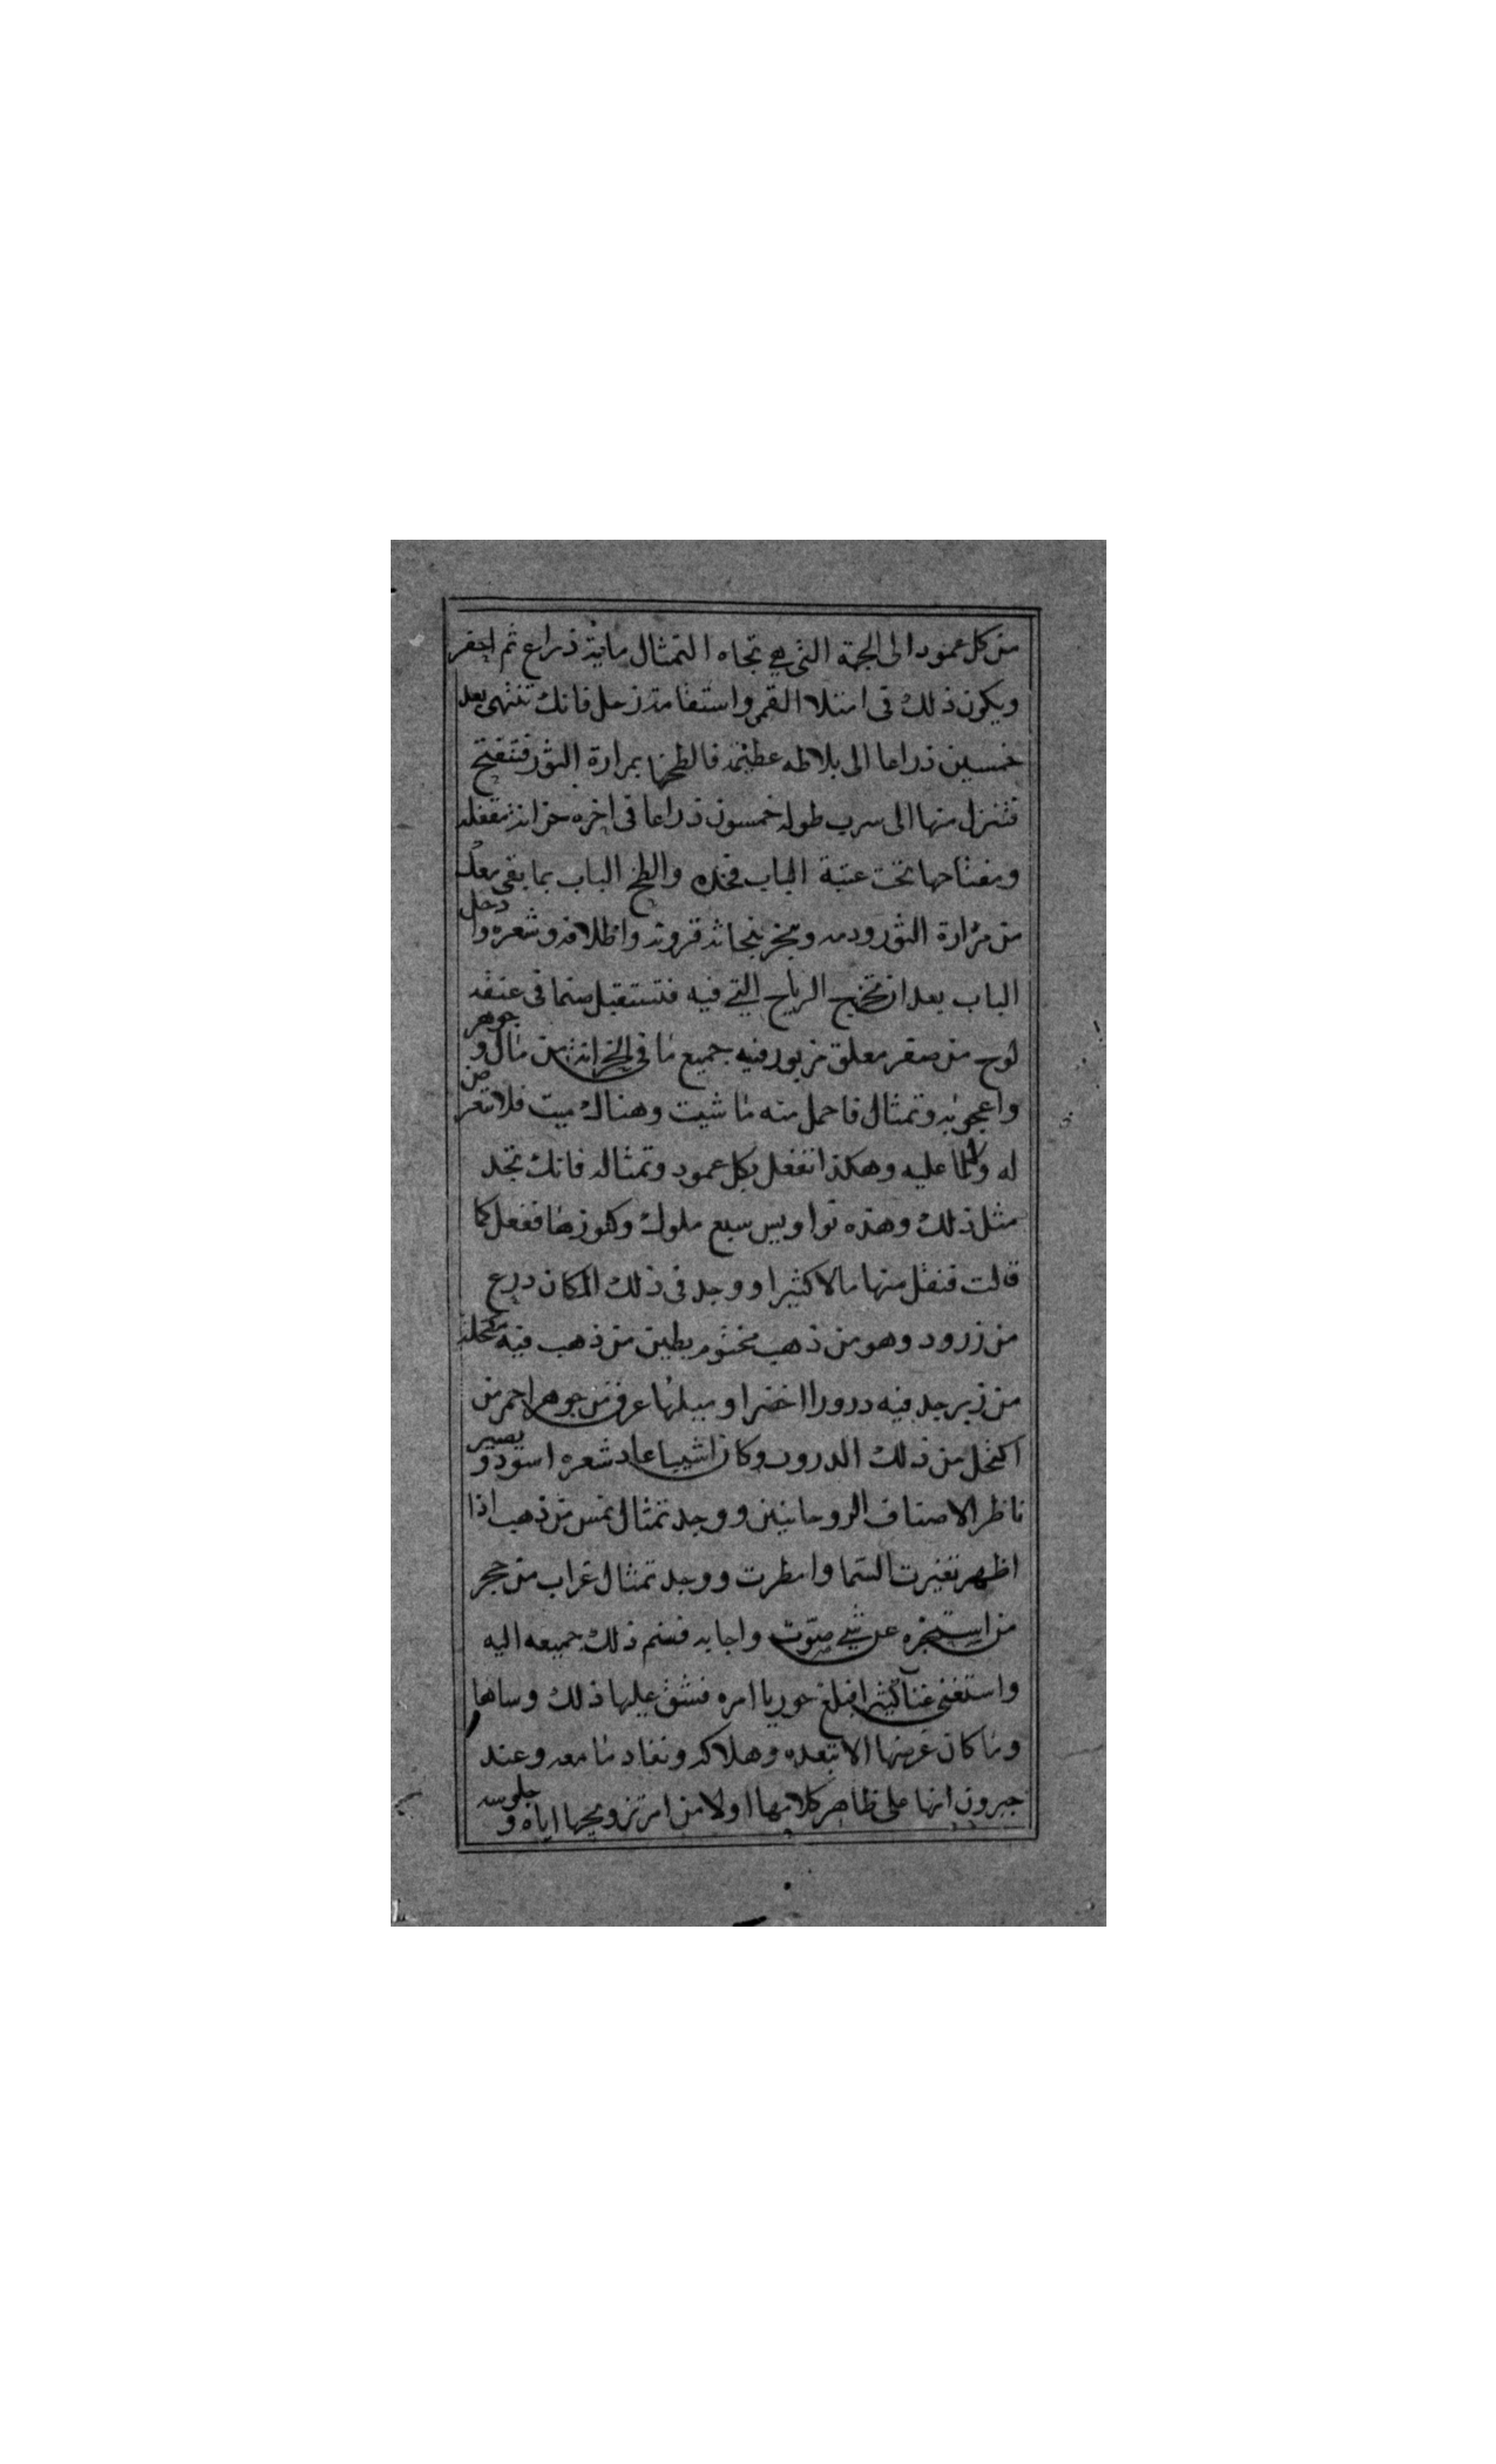 من كل عمود الى الجهة التى هي تجاه التمثال ماية ذراع ثم احفر
ويكون ذلك فى امتلا القمر واستقامة زحل فانك تنتهى بعد
خمسين ذراعا الى بلاطه عظيمة فالطخها بمرارة الثور فتفتح
فتنزل منها الى سرب طوله خمسون ذراعا فى اخره خزانة مقفلة
ومفتاحها تحت عتبة الباب فخذه والطخ الباب بما بقى معك
من مرارة الثور ودمه وبخر بنحاتة قرونه واظلافه وشعره وادخل
الباب بعد ان تخرج الرياح التي فيه فتستقبل صنما فى عنقه
لوح من صفر معلق مزبور فيه جميع ما فى الخزانة من مال وجوهر
واعجوبه وتمثال فاحمل منه ما شيت وهناك ميت فلا تعرض
له ولما عليه وهكذا تفعل بكل عمود وتمثاله فانك تجد
مثل ذلك وهذه نواويس سبع ملوك وكنوزها ففعل كما
قالت فنقل منها مالا كثيرا ووجد فى ذلك المكان درج
من زرود وهو من ذهب مختوم بطين من ذهب فيه مكحلة
من زبرجد فيه درورا اخضرا وميلها عرق من جوهر احمر من
اكتحل من ذلك الدرور وكان اشيبا عاد شعره اسود ويصير
ناظر الاصناف الروحانيين ووجد تمثال نمس من ذهب اذا
اظهر تغيرت السما وامطرت ووجد تمثال غراب من حجر
من استخبره عن شي صوت واجابه فضم ذلك جميعه اليه
واستغنى غنآ كثيرا فبلغ حوريا امره فشق عليها ذلك وساها
وما كان غرضها الا تبعده وهلاكه ونفاد ما معه وعند
جيرون انها على ظاهر كلامها اولا من امر تزويجها اياه وجلوسه